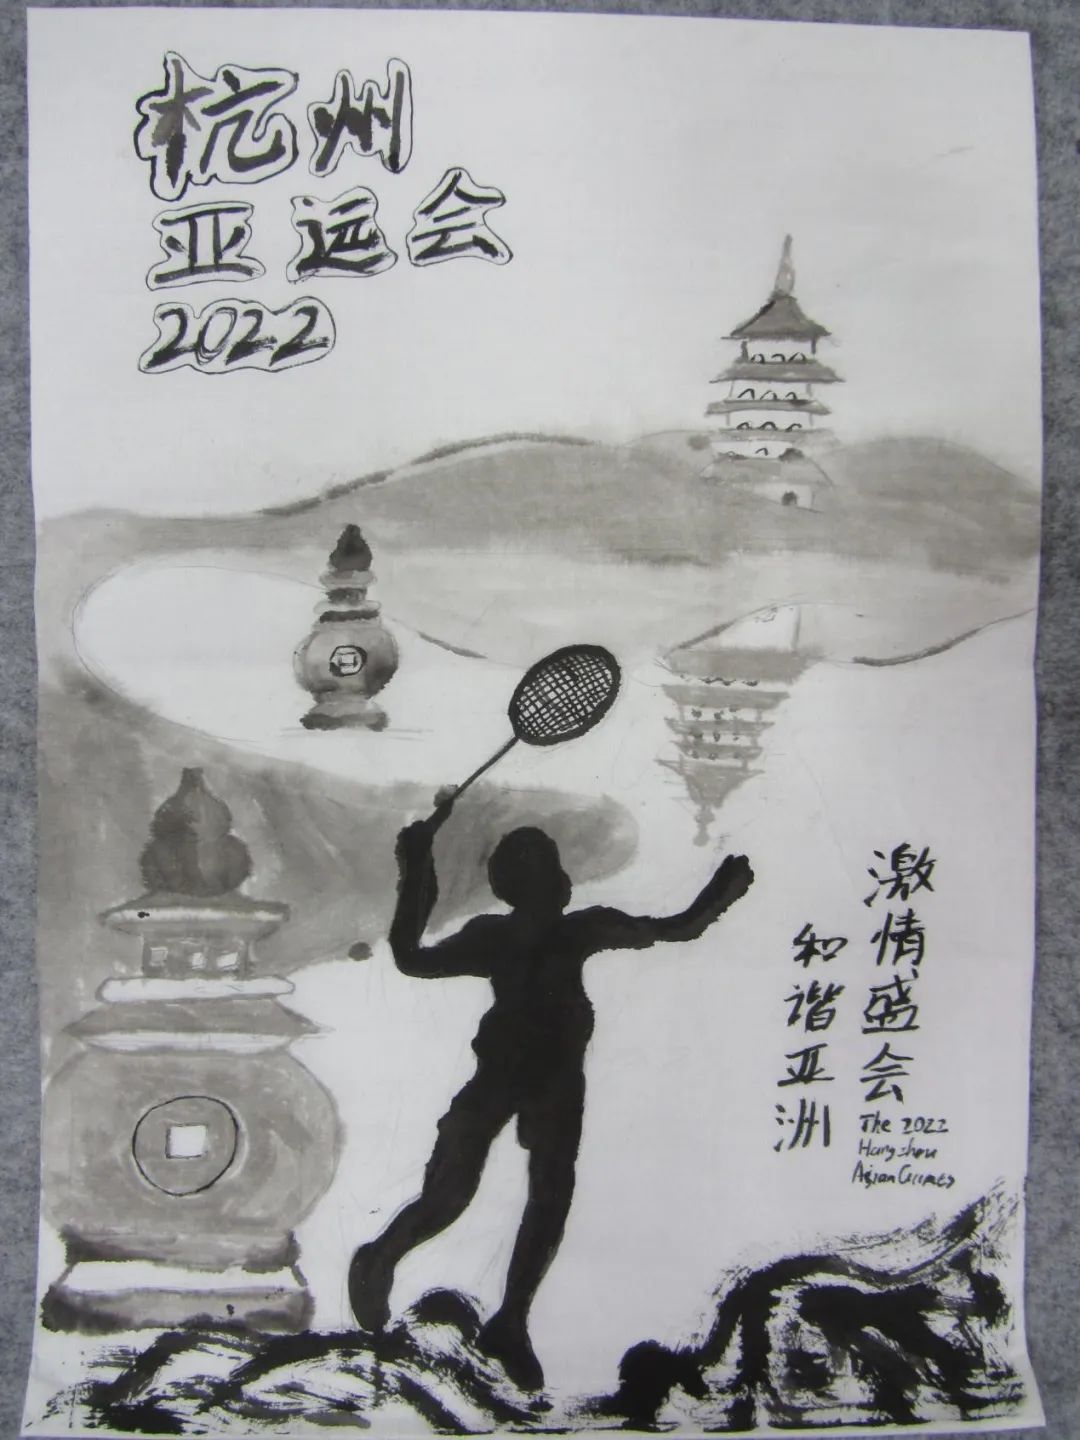 杭州
亚运会
2022
激情盛会
和谐亚洲
The 2022
Hangzhou
Asian Games